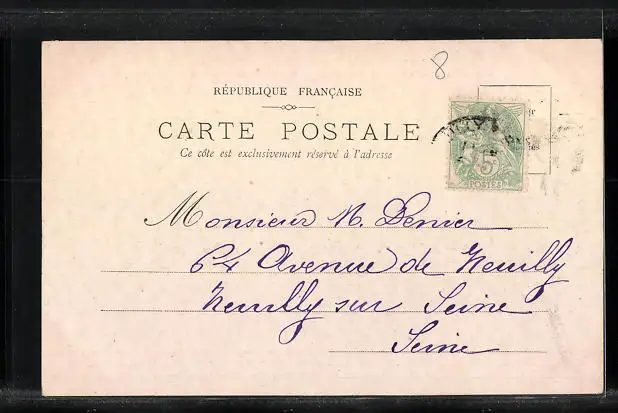 8
RÉPUBLIQUE FRANÇAISE
CARTE POSTALE
Ce côte est exclusivement réservé à l'adresse
5
POSTES
Monsieur N. Denier
64 Avenue de Neuilly
Neuilly sur Seine
Seine